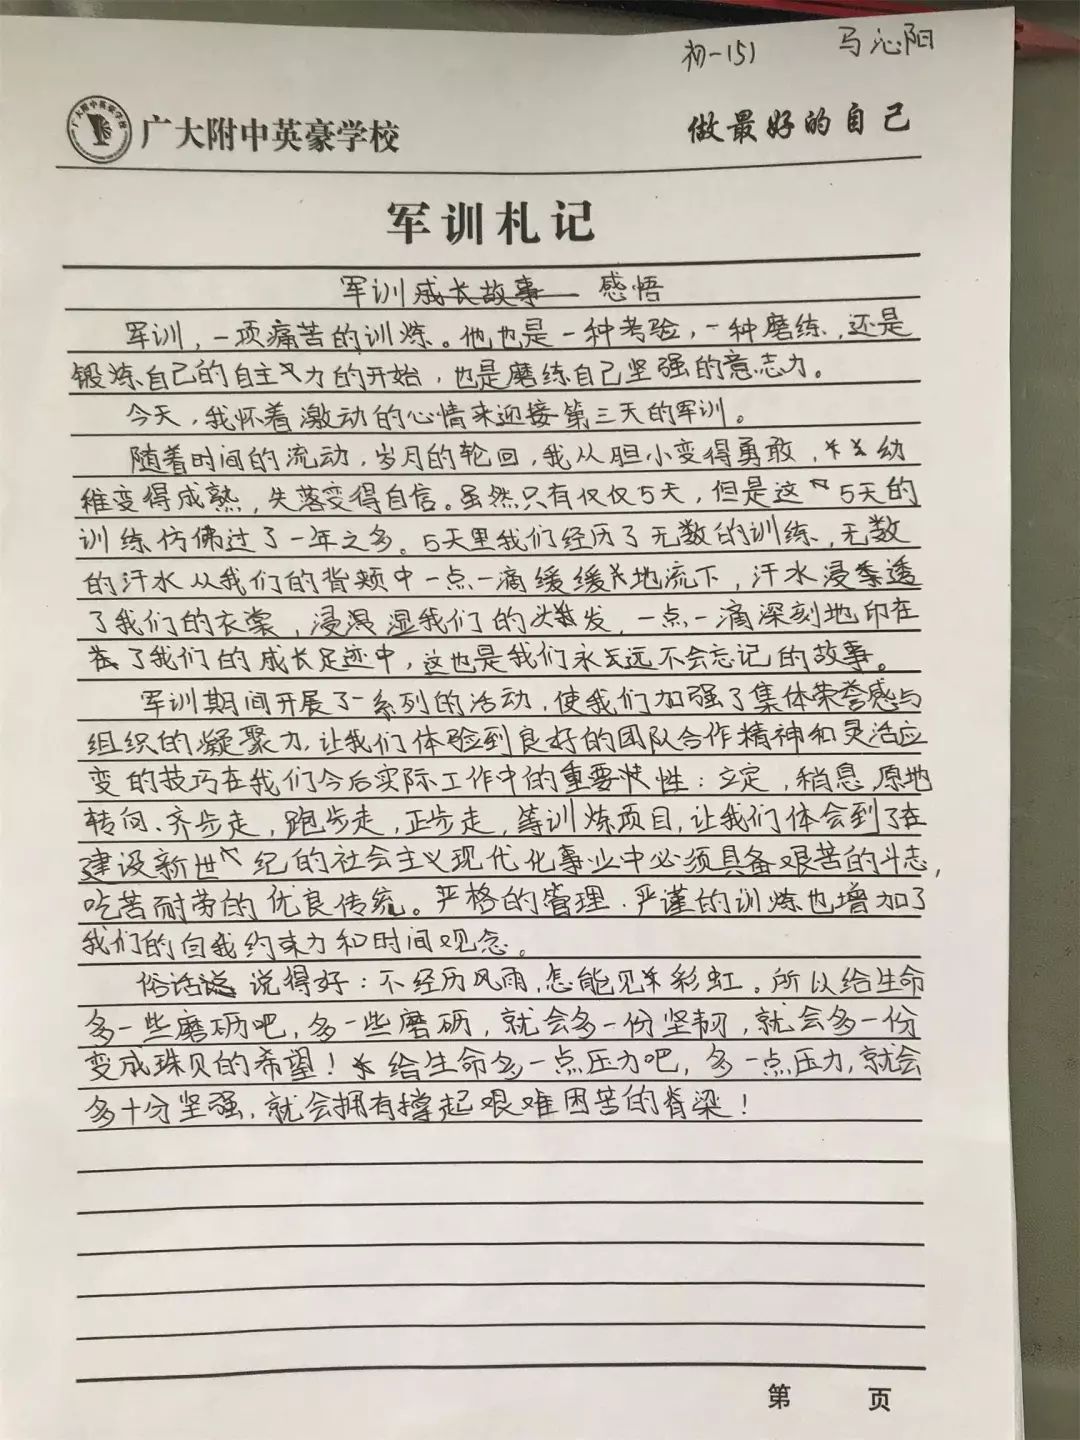 初一151 马沁阳
广大附中英豪学校 做最好的自己
军训札记
军训成长故事 感悟
军训，一项痛苦的训炼。他也是一种考验，一种磨练，还是
锻炼自己的自主力的开始，也是磨练自己坚强的意志力。
今天，我怀着激动的心情来迎接第三天的军训。
随着时间的流动，岁月的轮回，我从胆小变得勇敢，幼
稚变得成熟，失落变得自信。虽然只有仅仅5天，但是这5天的
训练仿佛过了一年之多。5天里我们经历了无数的训练，无数
的汗水从我们的背颊中一点一滴缓缓地流下，汗水浸透
了我们的衣裳，浸湿我们的头发，一点一滴深刻地印在
了我们的成长足迹中，这也是我们永远不会忘记的故事。
军训期间开展了一系列的活动，使我们加强了集体荣誉感与
组织的凝聚力，让我们体验到良好的团队合作精神和灵活应
变的技巧在我们今后实际工作中的重要性：立定，稍息，原地
转向、齐步走，跑步走，正步走，等训炼项目，让我们体会到了在
建设新世纪的社会主义现代化事业中必须具备艰苦的斗志，
吃苦耐劳的优良传统。严格的管理，严谨的训炼也增加了
我们的自我约束力和时间观念。
俗话说得好：不经历风雨，怎能见彩虹。所以给生命
多一些磨砺吧，多一些磨砺，就会多一份坚韧，就会多一份
变成珠贝的希望！给生命多一点压力吧，多一点压力，就会
多十分坚强，就会拥有撑起艰难困苦的脊梁！
第 页